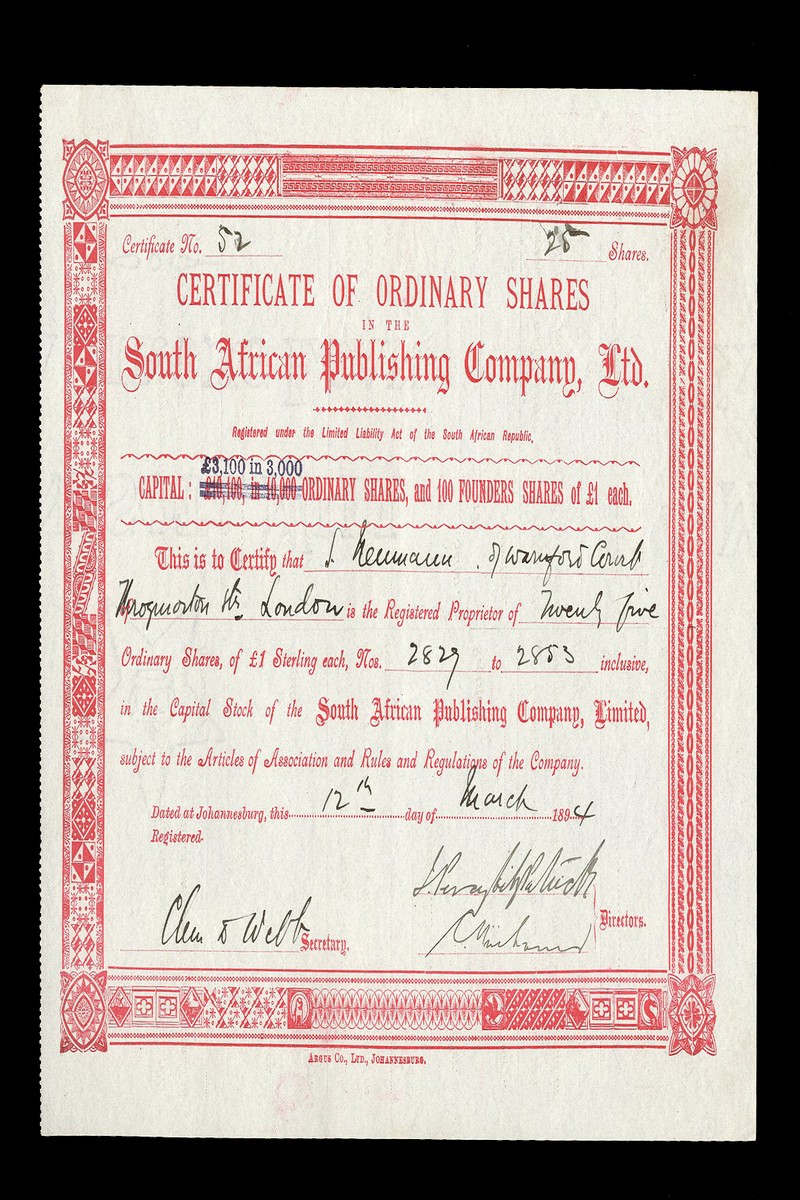 Certificate No. 52
25 Shares.
CERTIFICATE OF ORDINARY SHARES
IN THE
South African Publishing Company, Ltd.
Registered under the Limited Liability Act of the South African Republic,
£3,100 in 3,000
CAPITAL: £10,100, in 10,000 ORDINARY SHARES, and 100 FOUNDERS SHARES of £1 each.
This is to Certify that S. Neumann. of Warnford Court
Throgmorton Str. London is the Registered Proprietor of Twenty five
Ordinary Shares, of £1 Sterling each, Nos. 2829 to 2853 inclusive,
in the Capital Stock of the South African Publishing Company, Limited,
subject to the Articles of Association and Rules and Regulations of the Company.
Dated at Johannesburg, this 12th day of March 1894
Registered.
J. Percy FitzPatrick
Directors.
Clem D Webb
Secretary.
ARGUS CO., LTD., JOHANNESBURG.